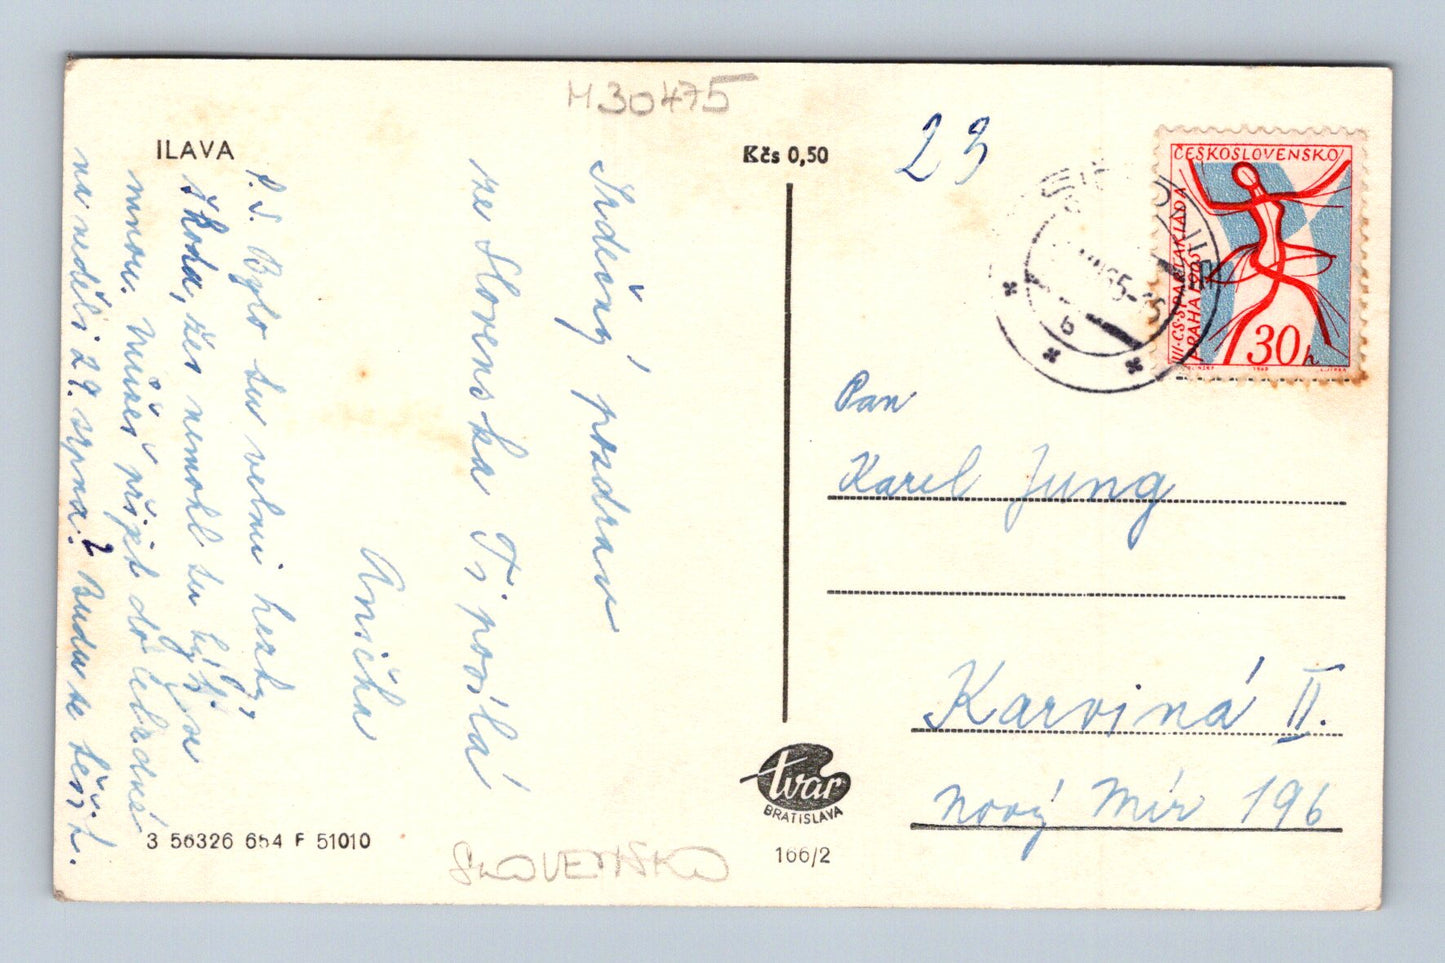 M30475
ILAVA
Kčs 0,50
23
ČESKOSLOVENSKO
III·CS·SPARTAKIÁDA
PRAHA 1965
30h
Srdečný pozdrav
ze Slovenska Ti posílá
Anička
P.S. Bylo tu velmi hezky,
škoda, žes nemohl tu být se
mnou. Můžeš přijet do
na neděli 29. srpna? Budu se těšit.
Pan
Karel Jung
Karviná II.
Nový Mír 196
tvar
BRATISLAVA
166/2
3 56326 654 F 51010
SLOVENSKO